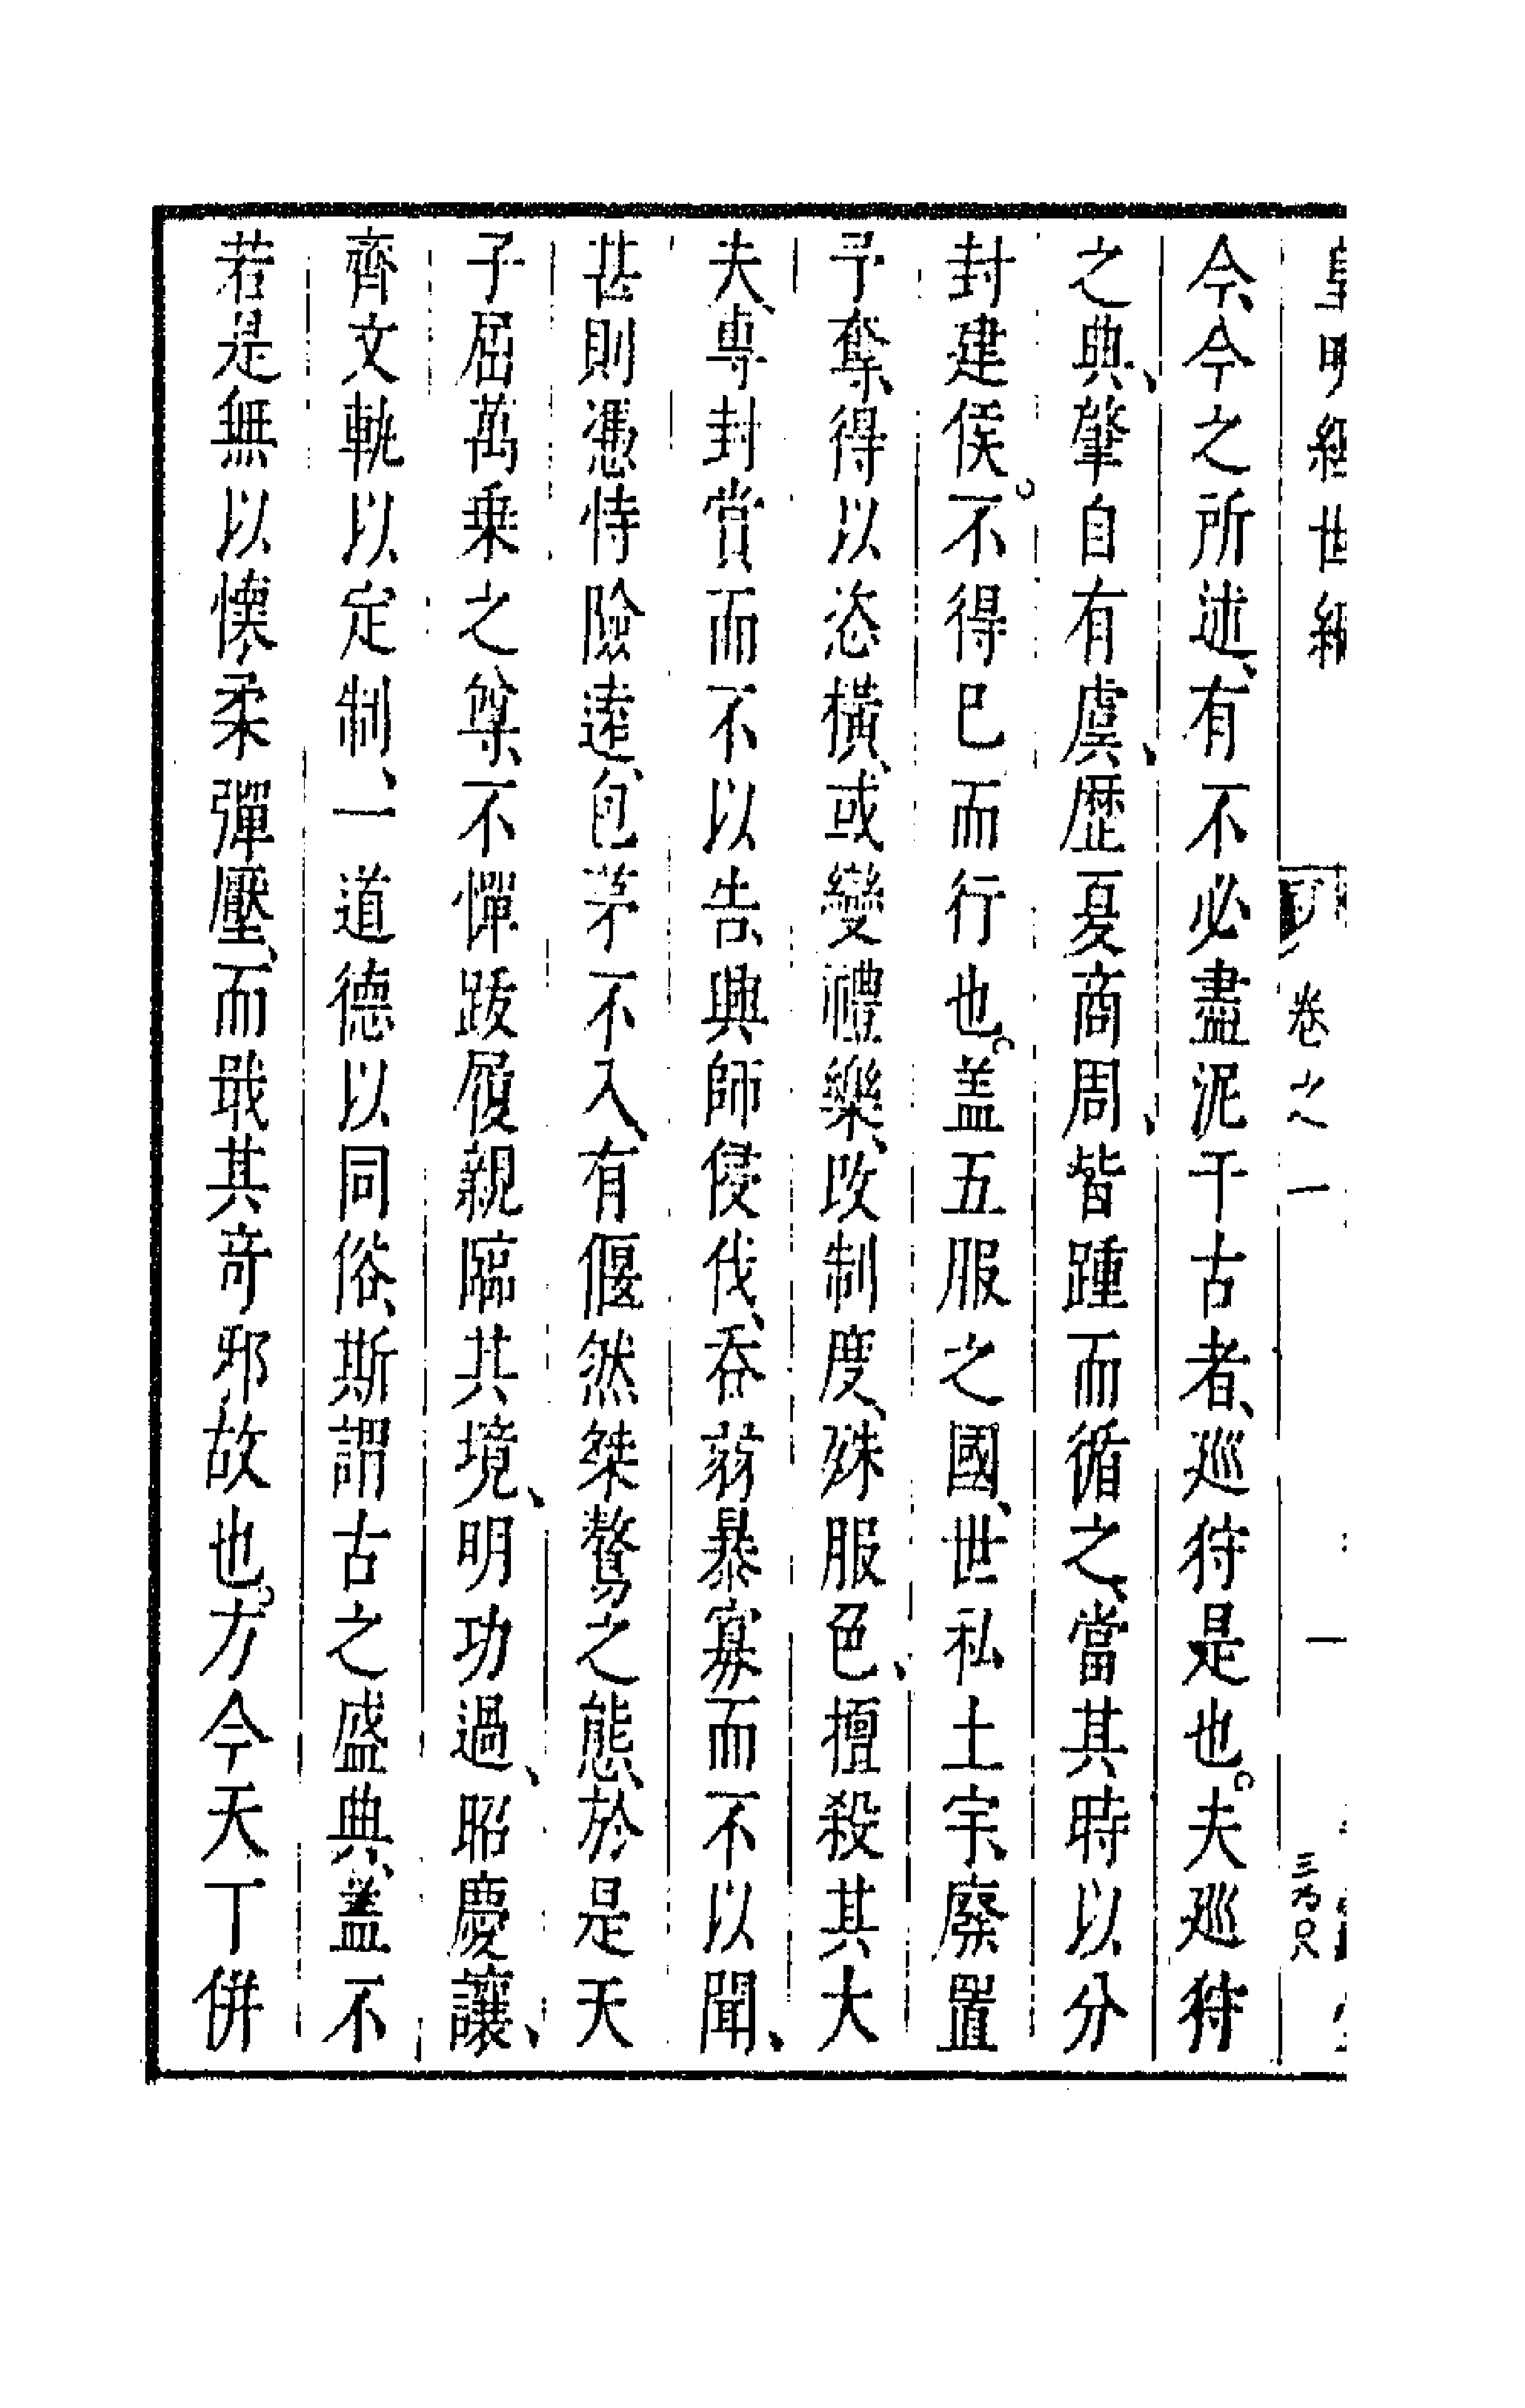 皇明經世編 卷之一 一
今、今之所述、有不必盡泥于古者、巡狩是也。夫巡狩
之典、肇自有虞、歷夏商周、皆踵而循之、當其時以分
封建侯。不得已而行也。盖五服之國、世私土宇、廢置
予奪、得以恣橫、或變禮樂、攺制度、殊服色、擅殺其大
夫、專封賞而不以告、興師侵伐、吞弱暴寡而不以聞、
甚則憑恃險遠、包茅不入、有偃然桀驁之態、於是天
子屈萬乗之尊、不憚跋履、親臨其境、明功過、昭慶讓、
齊文軌以定制、一道德以同俗、斯謂古之盛典、蓋不
若是無以懷柔彈壓、而戢其奇邪故也。方今天下併